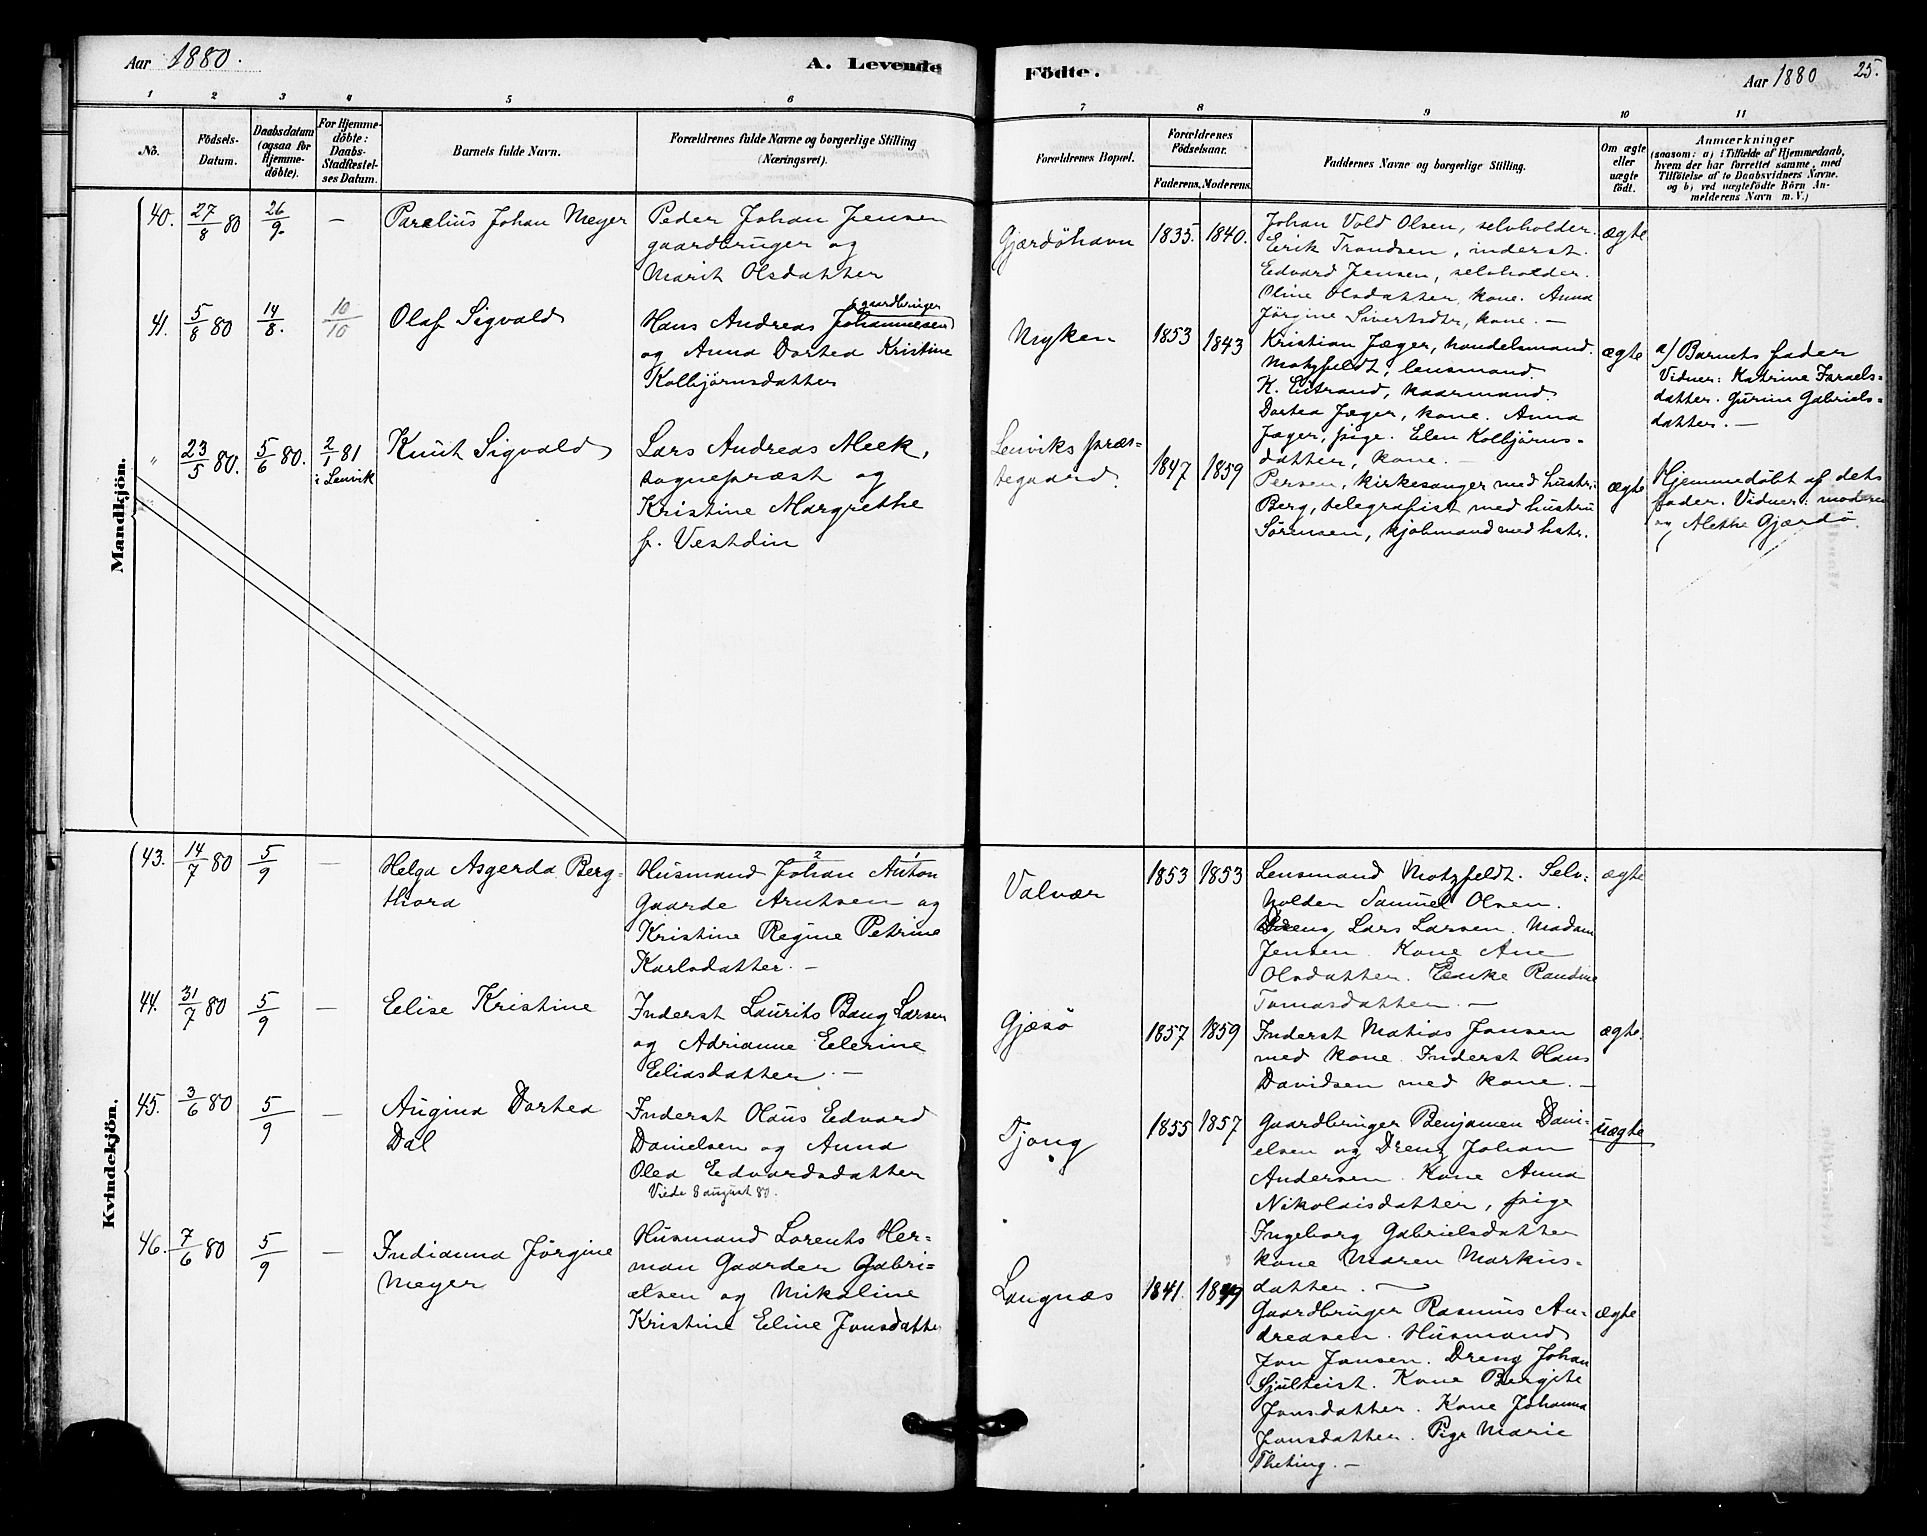 Aar 1880.
A. Levende
Födte.
Aar 1880
25.
1 2 3 4 5 6 7 8 9 10 11
No.
Födsels-Datum.
Daabsdatum (ogsaa for Hjemme-döbte).
For Hjemme-döbte: Daabs-Stadfæstel-ses Datum.
Barnets fulde Navn.
Forældrenes fulde Navne og borgerlige Stilling (Næringsvei).
Forældrenes Bopæl.
Forældrenes Födselsaar.
Faderens. Moderens.
Faddernes Navne og borgerlige Stilling.
Om ægte eller uægte födt.
Anmærkninger
(saasom: a) i Tilfælde af Hjemmedaab,
hvem der har forrettet samme, med
Tilföielse af to Daabsvidners Navne.
og b) ved uægtefödte Börn An-
melderens Navn m. V.)
Mandkjön.
40. 27/8 80 26/9. — Parelius Johan Meyer
Peder Johan Jensen
gaardbruger og
Marit Olsdatter
Gjærdöhavn 1835. 1840.
Johan Vold Olsen, selvholder.
Erik Trondsen, inderst.
Edvard Jensen, selvholder.
Oline Olsdatter, kone. Anna
Jörgine Sivertsdtr, kone. —
ægte
41. 5/8 80 14/8. 10/10 Olaf Sigvald
gaardbruger
Hans Andreas Johannesen
og Anna Dortea Kristine
Kolbjörnsdatter
Myken 1853 1843
Kristian Jæger, handelsmand.
Motzfeldt, lensmand.
K. Eistrand, kaarmand.
Dortea Jæger, kone. Anna
Jæger, pige. Elen Kolbjörns-
datter, kone. —
ægte
a/ Barnets fader
Vidner: Katrine Israels-
datter. Gurine Gabriels-
datter. —
" 23/5 80. 5/6 80. 2/1 81 i Lenvik Knut Sigvald
Lars Andreas Meek,
sognepræst og
Kristine Margrethe
f. Vestdin
Lenviks præs-
tegaard. 1847 1859
Persen, kirkesanger med hustr:
Berg, telegrafist med hustru
Sörensen, kjöbmand med hstr.
ægte
Hjemmedöbt af dets
fader. Vidner: moderen
og Alethe Gjærdö.
Kvindekjön.
43. 14/7 80 5/9 — Helga Asgerda Berg-
thora
2 1
Husmand Johan Anton
Gaarde Arntsen og
Kristine Regine Petrine
Karlsdatter. —
Valvær 1853 1853
Lensmand Motzfeldt. Selv-
holder Samuel Olsen.
Dreng Lars Larsen. Madam
Jensen. Kone Ane
Olsdatter. Enke Randine
Tomasdatter. —
ægte
44. 31/7 80 5/9 — Eelise Kristine
Inderst Laurits Bang Larsen
og Adrianne Eelerine
Eeliasdatter. —
Gjæsö 1857 1859
Inderst Matias Jansen
med kone. Inderst Hans
Davidsen med kone. —
ægte.
45. 3/6 80 5/9 — Augina Dortea
Dal
Inderst Olaus Eedvard
Danielsen og Anna
Olea Eedvardsdatter
Viede 8 august 80.
Tjong 1855 1857
Gaardbruger Benjamen Dani-
elsen og Dreng Johan
Andersen. Kone Anna
Nikolaisdatter, pige
Ingeborg Gabrielsdatter
kone Maren Markus-
datter. —
uægte
46. 7/6 80 5/9 — Indianna Jörgine
Meyer
Husmand Lorents Her-
man Gaarder Gabri-
elsen og Mikaline
Kristine Eeline Jonsdatter
Langnæs 1841. 1849
Gaardbruger Rasmus An-
dreasen. Husmand
Jon Jonsen. Dreng Johan
Sjulheist. Kone Bergite
Jonsdatter. Kone Johanna
Jonsdatter. Pige Marie
Theting. —
ægte